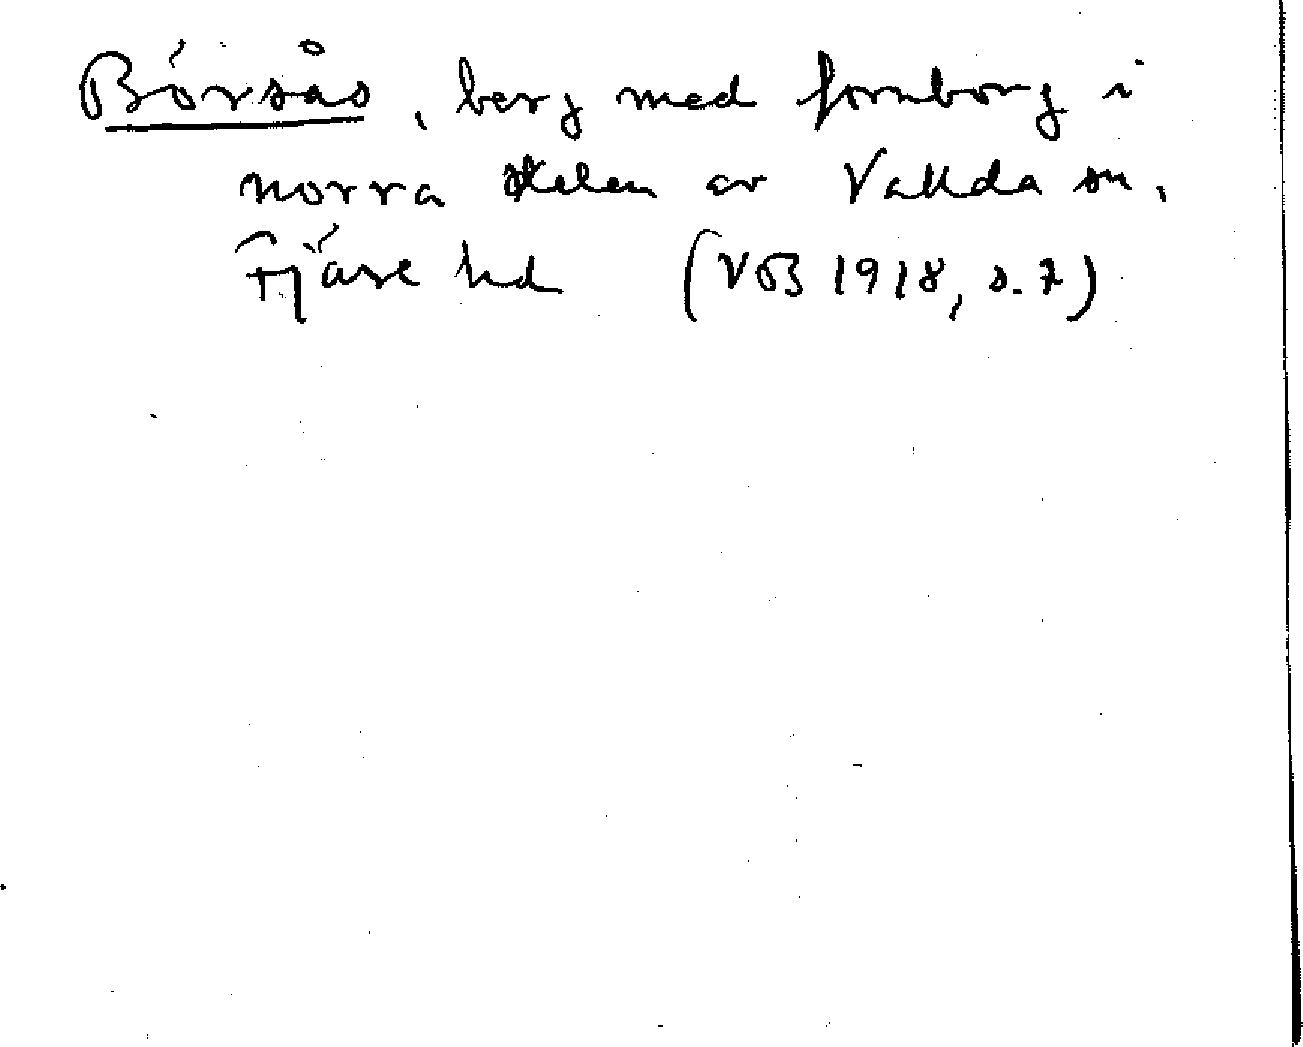 Börsås, berg med fornborg i
norra delen av Vallda sn,
Fjäre hd (VOB 1918, s. 7)